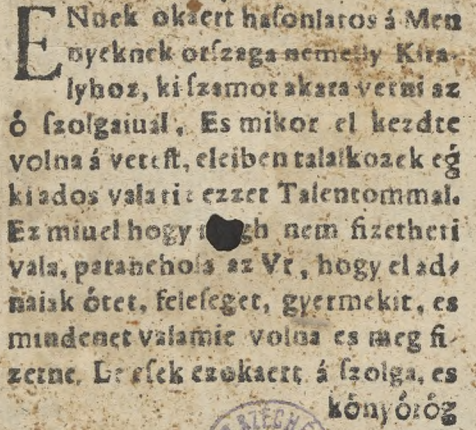 ENnek okaert hasonlatos á Men
nyeknek orszaga nemelly Kira-
lyhoz, ki szamot akara vetni az
ó szolgaiual. Es mikor el kezdte
volna á vetest, eleiben talalkozek eģ
ki ados vala tiz ezzer Talentommal.
Ez miuel hogy nem fizetheti
vala, paranchola az Vr, hogy el ad-
naiak ótet, feleseget, gyermekit, es
mindenet valamie volna es meg fi
zetne. Le esek ezokaert á szolga, es
kónyóróg